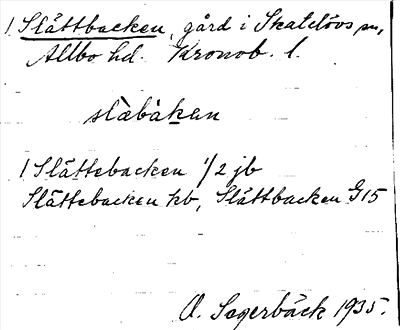 1 Slättbacken, gård i Skatelövs sn,
Allbo hd. Kronob. l.
slàbàkan
1 Slättebacken 1/2 jb
Slättebacken kb, Slättbacken G15
O. Sagerbäck 1935.